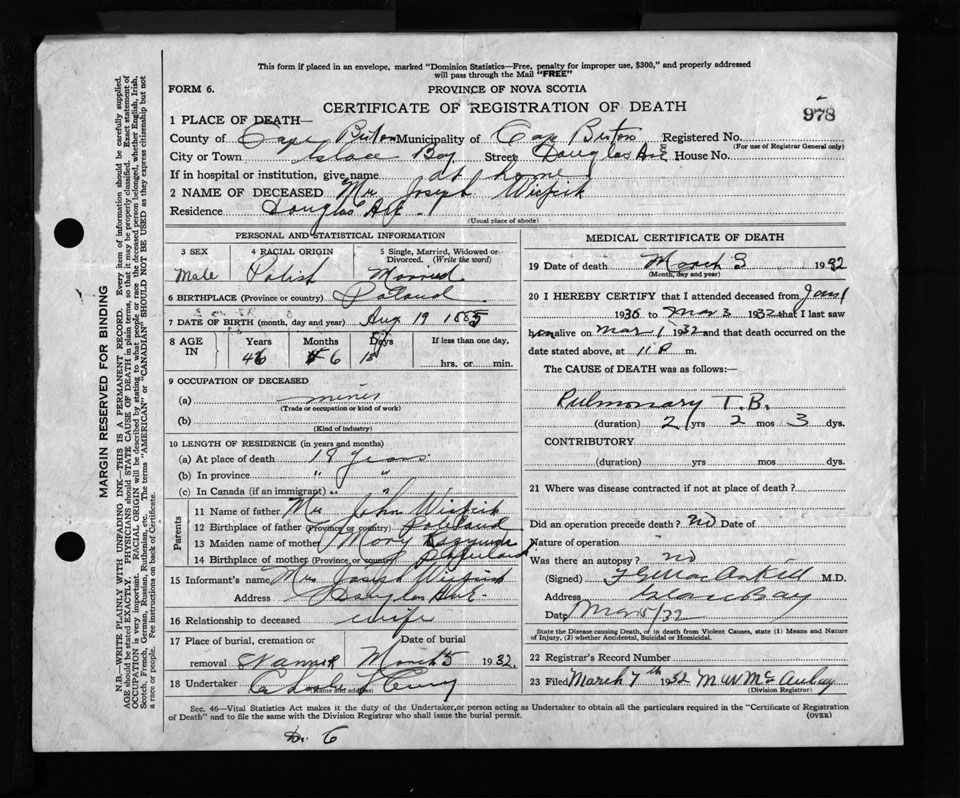 This form if placed in an envelope, marked "Dominion Statistics—Free, penalty for improper use, $300," and properly addressed
will pass through the Mail "FREE"
FORM 6. PROVINCE OF NOVA SCOTIA
CERTIFICATE OF REGISTRATION OF DEATH
978
1 PLACE OF DEATH—
County of Cape Breton Municipality of Cap Breton Registered No.
(For use of Registrar General only)
City or Town Glace Bay Street Douglas Ave House No.
If in hospital or institution, give name at home
2 NAME OF DECEASED Mr Joseph
Residence Douglas Ave.
(Usual place of abode)
PERSONAL AND STATISTICAL INFORMATION
3 SEX 4 RACIAL ORIGIN 5 Single, Married, Widowed or Divorced. (Write the word)
Male Polish Married
6 BIRTHPLACE (Province or country) Poland
7 DATE OF BIRTH (month, day and year) Aug 19 1885
8 AGE IN Years Months Days If less than one day,
46 6 hrs. or min.
9 OCCUPATION OF DECEASED
(a) miner
(Trade or occupation or kind of work)
(b)
(Kind of industry)
10 LENGTH OF RESIDENCE (in years and months)
(a) At place of death 18 years
(b) In province " "
(c) In Canada (if an immigrant) " "
Parents
11 Name of father Mr John
12 Birthplace of father (Province or country) Poland
13 Maiden name of mother Mary
14 Birthplace of mother (Province or country)
15 Informant's name Mrs Joseph
Address Douglas Ave.
16 Relationship to deceased wife
17 Place of burial, cremation or Date of burial
removal March 5 1932.
18 Undertaker Charles
(Name and address)
MEDICAL CERTIFICATE OF DEATH
19 Date of death March 3 1932
(Month, day and year)
20 I HEREBY CERTIFY that I attended deceased from Jan 1
1930 to Mar 3 1932 that I last saw
him alive on Mar 1 1932 and that death occurred on the
date stated above, at 11 P m.
The CAUSE of DEATH was as follows:—
Pulmonary T.B.
(duration) 2 yrs 2 mos 3 dys.
CONTRIBUTORY
(duration) yrs mos dys.
21 Where was disease contracted if not at place of death?
Did an operation precede death? no Date of
Nature of operation
Was there an autopsy? no
(Signed) M.D.
Address Glace Bay
Date Mar 5/32
State the Disease causing Death, or in death from Violent Causes, state (1) Means and Nature
of Injury, (2) whether Accidental, Suicidal or Homicidal.
22 Registrar's Record Number
23 Filed March 7th 1932 M W McAulay
(Division Registrar)
Sec. 46—Vital Statistics Act makes it the duty of the Undertaker, or person acting as Undertaker to obtain all the particulars required in the "Certificate of Registration
of Death" and to file the same with the Division Registrar who shall issue the burial permit. (OVER)
MARGIN RESERVED FOR BINDING
N.B.—WRITE PLAINLY WITH UNFADING INK—THIS IS A PERMANENT RECORD. Every item of information should be carefully supplied.
AGE should be stated EXACTLY. PHYSICIANS should STATE CAUSE OF DEATH in plain terms, so that it may be properly classified. Exact statement of
OCCUPATION is very important. RACIAL ORIGIN will be described by stating to what people or race the deceased person belonged, whether English, Irish,
Scotch, French, German, Russian, Ruthenian, etc. The terms "AMERICAN" or "CANADIAN" SHOULD NOT BE USED as they express citizenship but not
a race or people. Fee instructions on back of Certificate.